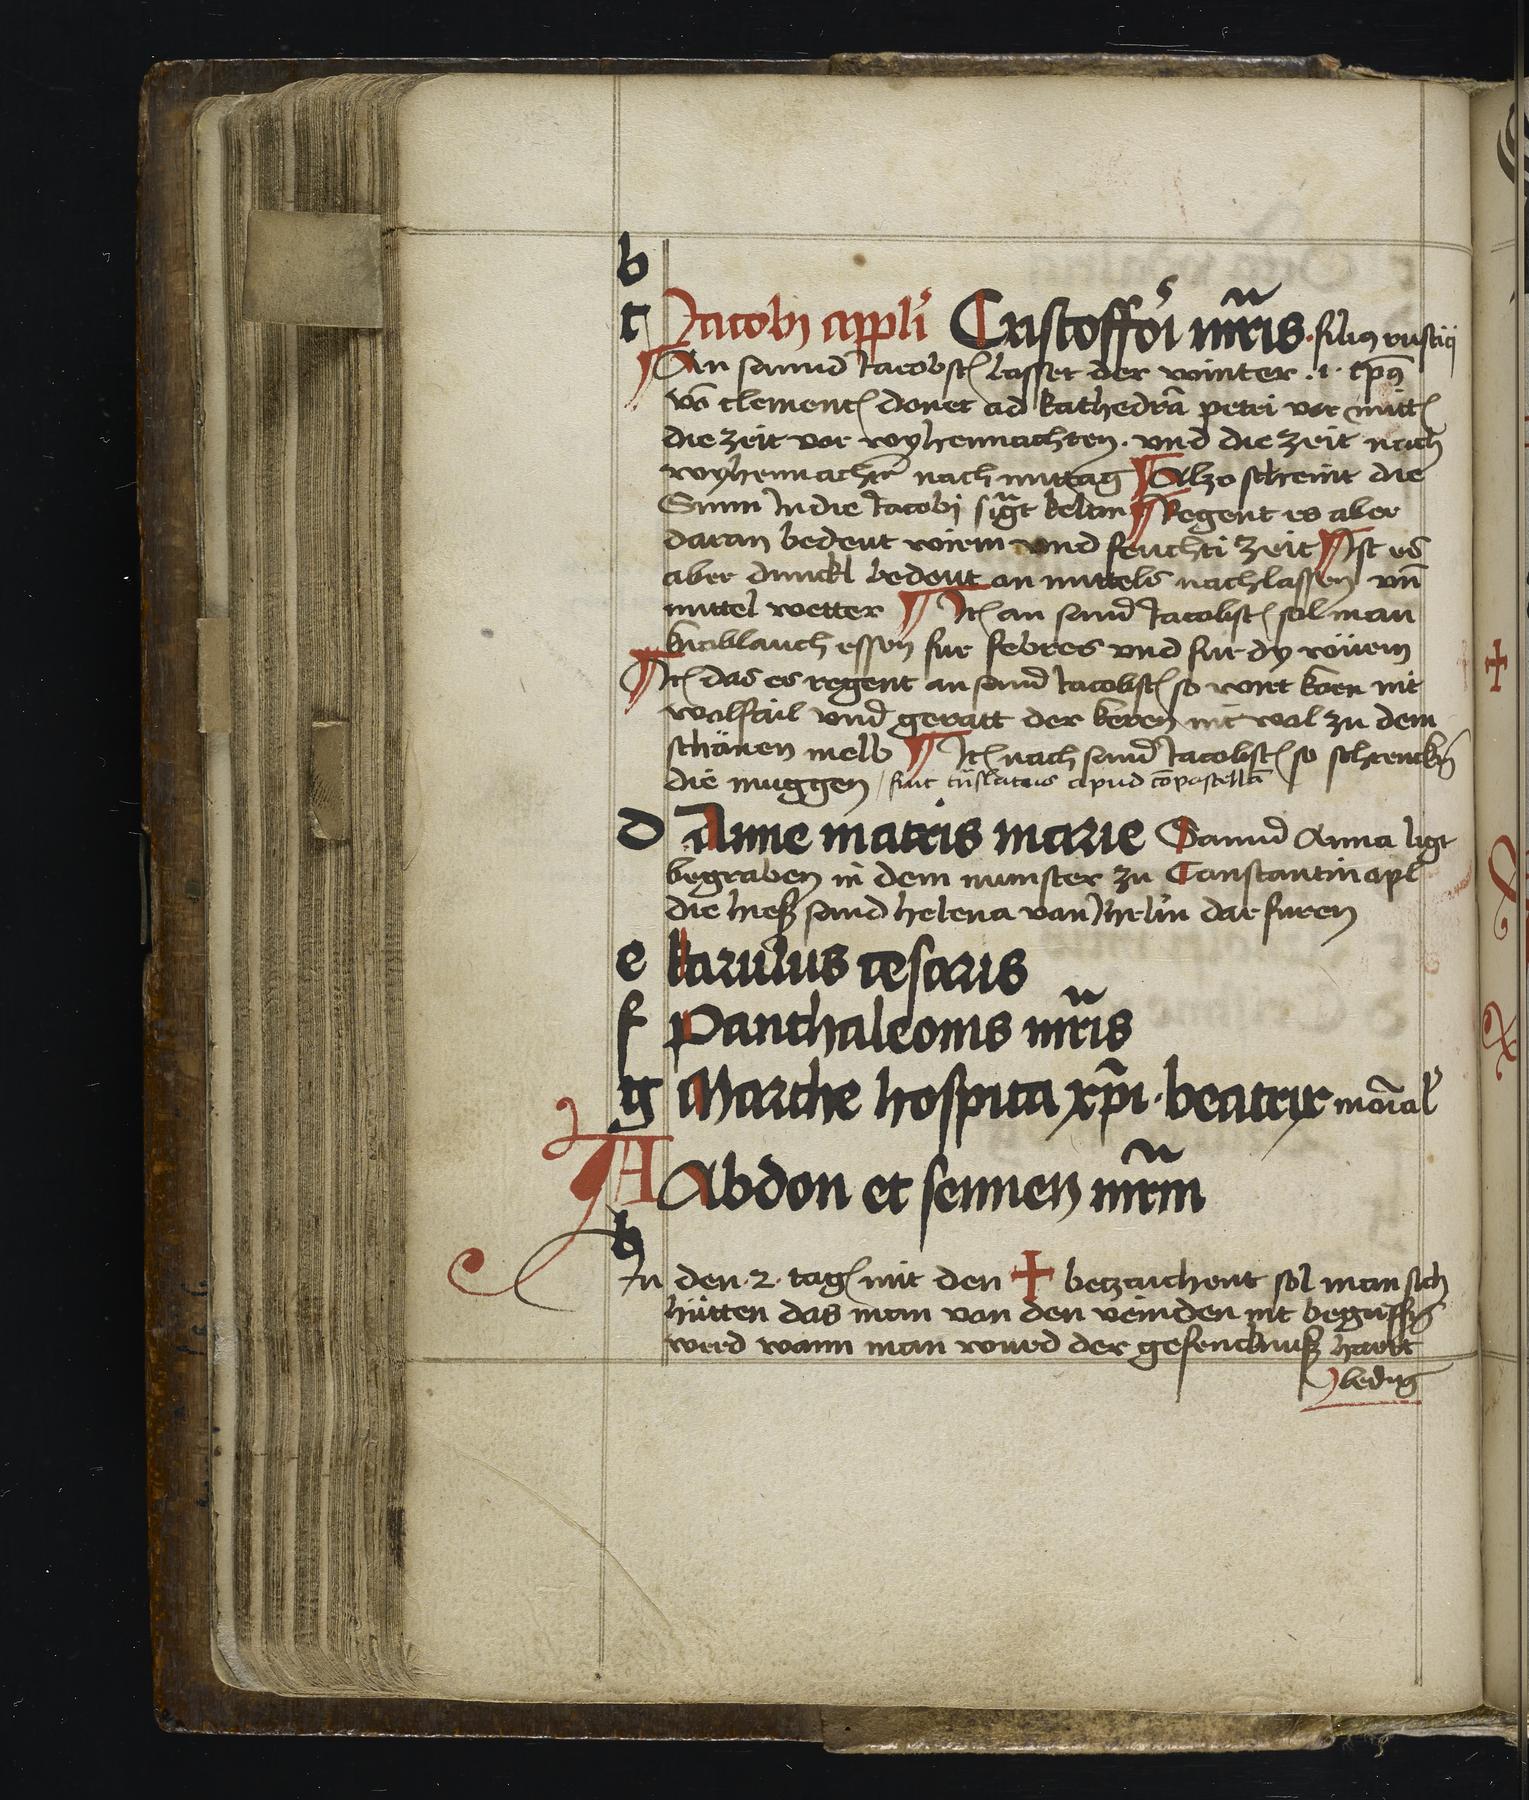 b
c Jacobi appli Cristoffori mr̃is. filius rustici
An sannd Jacobstꝭ lasset der winter .1. tp̃s
vō clementꝭ donec ad kathedrā petri vor mittꝭ
die zeit vor wyhennachten. vnd die zeit nach
wyhennachtē nach mittag Alzo scheint die
Sunn In die Jacobi sīgt keltin Regent es aber
daran bedeut wirm vnd feuchti zeit Ist es
aber dunckl bedout an mittels nachlassen vn̄
mittel wetter Itꝭ an sannd Jacobstꝭ sol man
knoblauch essen fur febres vnd fur dy wüem
Itꝭ das es regent an sannd Jacobstꝭ so wirt korn nit
wolfail vnd geratt der keren nit wol zu dem
schönen melb Itꝭ nach sannd Jacobstꝭ so schrenckn̄
die muggen / fuit trūslatus apud cōpostellā
d Anne matris marie Sannd Anna ligt
begraben in dem munster zu Constantinopl
die hiesz sannd helena von Jhrl̄m dar furen
e karulus cesaris
f Panthaleonis mr̃is
g Marthe hospita xp̄i. beatrix mōial
A Abdon et sennen mr̃m
b
In den .2. tagꝭ mit den + betzaichent sol man sich
hütten das man von den veinden nit begriffn̄
werd wann man wurd der gefencknusz hartt
ledig